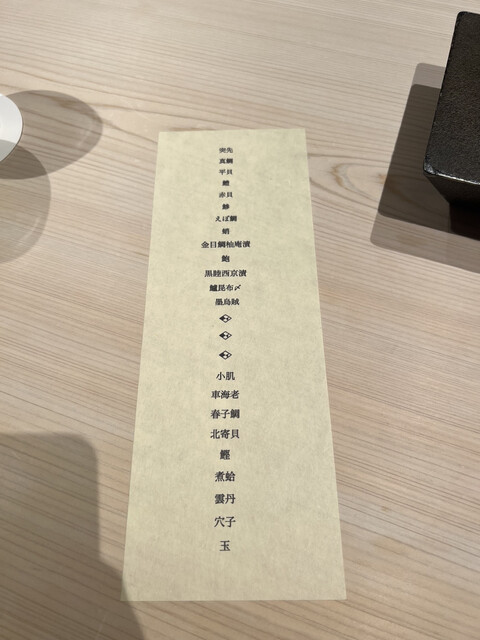 突先
真鯛
平貝
鰹
赤貝
鯵
えぼ鯛
蛸
金目鯛柚庵漬
鮑
黒睦西京漬
鱸昆布〆
墨烏賊
小肌
車海老
春子鯛
北寄貝
鰹
煮蛤
雲丹
穴子
玉